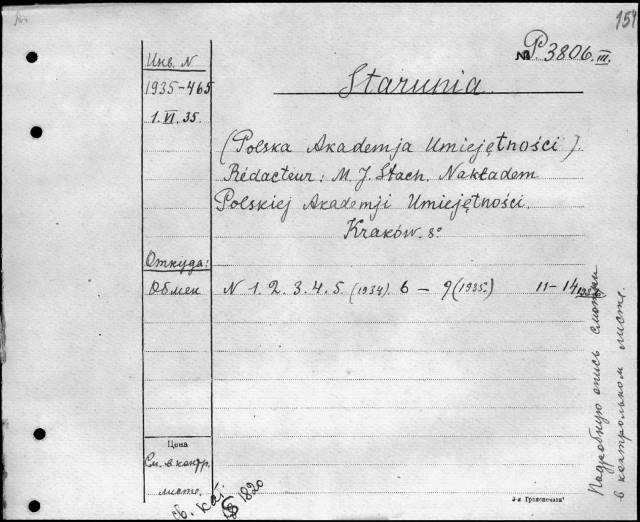 154
Инв. N
1935-465
1.VI.35.
№ P. 3806.III.
Starunia.
(Polska Akademja Umiejętności).
Rédacteur: M. J. Stach. Nakładem
Polskiej Akademji Umiejętności.
Kraków. 8º
Откуда:
Обмен
N 1. 2. 3. 4. 5 (1934). 6 – 9 (1935.) 11-14
Подробную опись смотри
в контрольном листе.
Цена
См. в контр.
листе.
св. кат.
1820